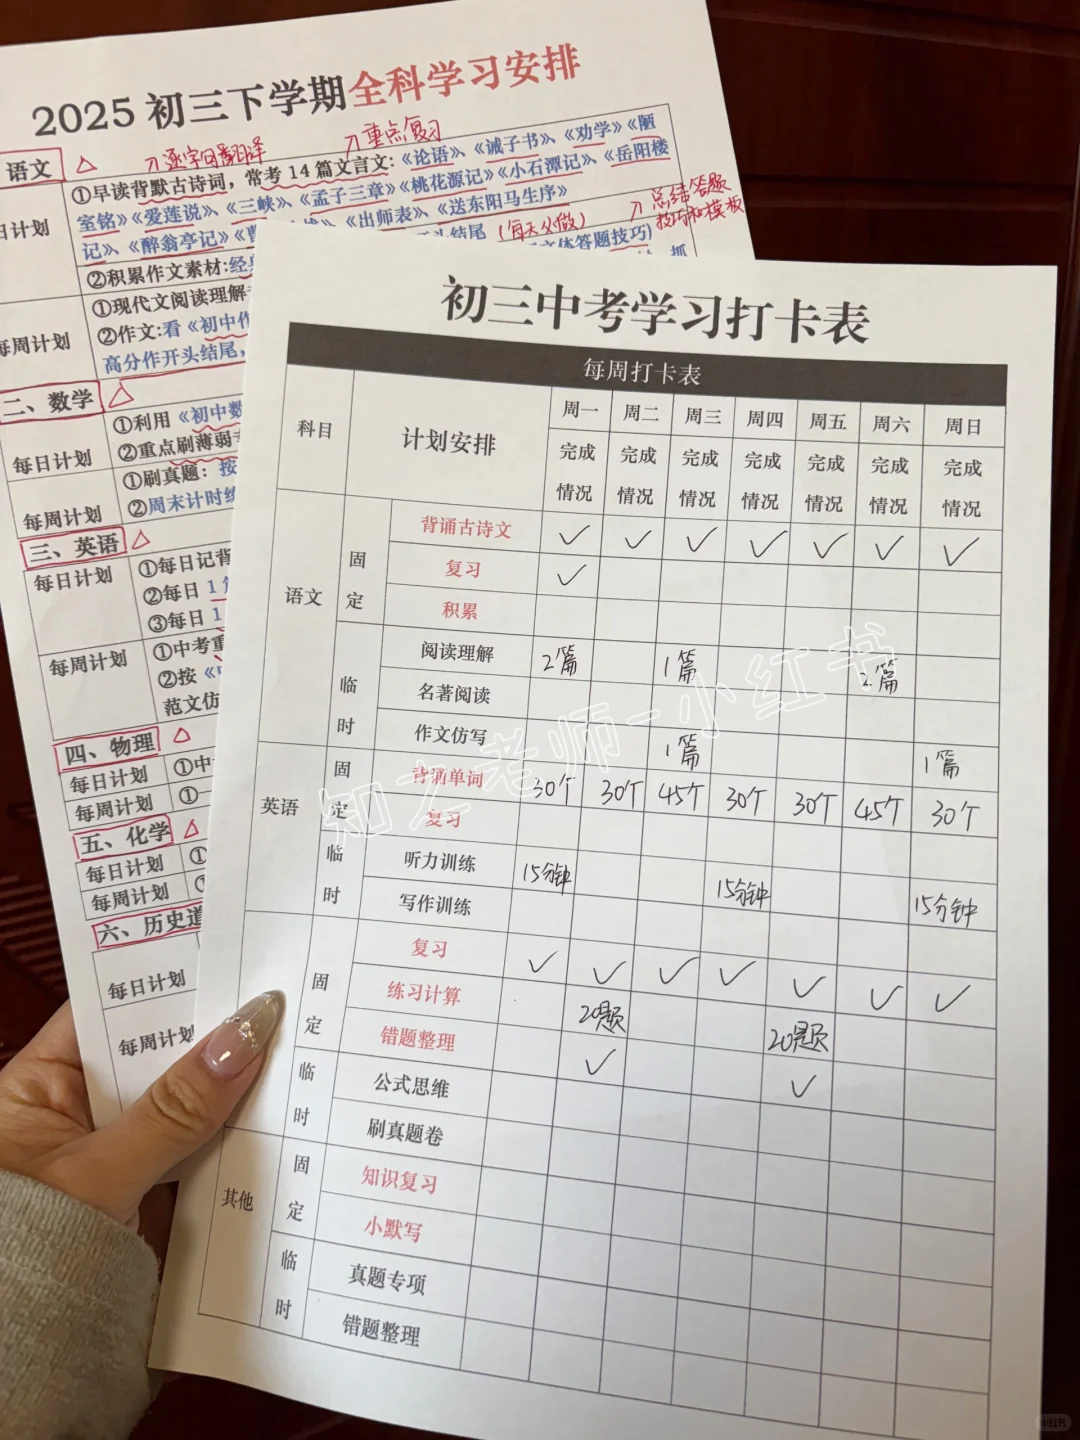 2025 初三下学期全科学习安排
语文
↗逐字句翻译
↗重点复习
①早读背默古诗词，常考 14 篇文言文:《论语》、《诫子书》、《劝学》《陋
日计划
室铭》《爱莲说》、《三峡》、《孟子三章》《桃花源记》《小石潭记》、《岳阳楼
记》、《醉翁亭记》
《出师表》、《送东阳马生序》
↗总结答题
技巧和模板
②积累作文素材:
开头结尾
(每天必做)
文体答题技巧)
抓
每周计划
①现代文阅读理解
②作文:看《初中作
高分作开头结尾,
二、数学
每日计划
①利用《初中数
②重点刷薄弱
每周计划
①刷真题：按
②周末计时练
三、英语
每日计划
①每日记背
②每日 1
③每日 1
每周计划
①中考重
②按
范文仿
四、物理
每日计划
①中
每周计划
①一
五、化学
每日计划
①
每周计划
六、历史道
每日计划
每周计划
初三中考学习打卡表
每周打卡表
科目 计划安排 周一 周二 周三 周四 周五 周六 周日
完成 完成 完成 完成 完成 完成 完成
情况 情况 情况 情况 情况 情况 情况
语文 固定 背诵古诗文 ✓ ✓ ✓ ✓ ✓ ✓ ✓
复习 ✓
积累
临时 阅读理解 2篇 1篇 2篇
名著阅读
作文仿写 1篇 1篇
英语 固定 背诵单词 30个 30个 45个 30个 30个 45个 30个
复习
临时 听力训练 15分钟 15分钟 15分钟
写作训练
固定 复习 ✓ ✓ ✓ ✓ ✓ ✓ ✓
练习计算 20题 20题
错题整理 ✓ ✓
临时 公式思维
刷真题卷
其他 固定 知识复习
小默写
临时 真题专项
错题整理
知之老师-小红书
小红书